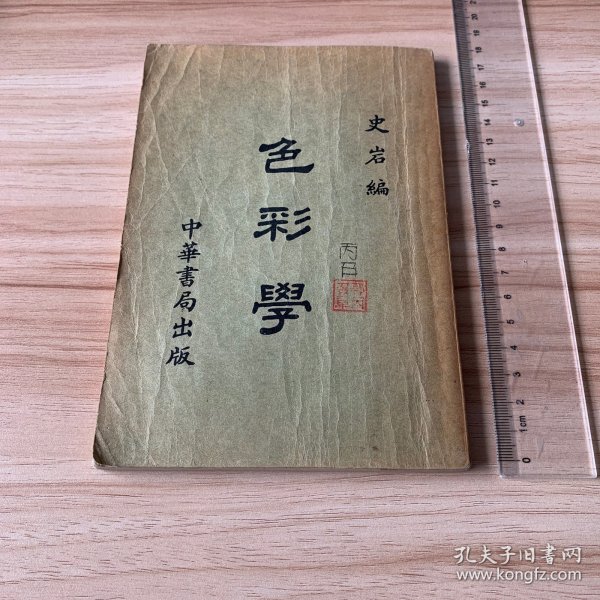 史岩編
色彩學
中華書局出版
20
19
18
17
16
15
14
13
12
11
10
9
8
7
6
5
4
3
2
1cm
0
孔夫子旧书网
www.kongfz.com